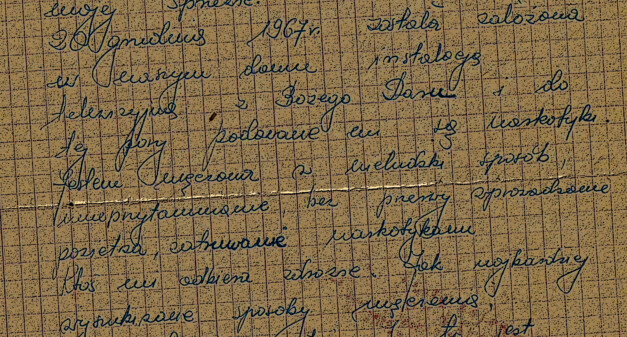 moje
20 grudnia 1967r. została założona
w naszym domu instalacja
telewizyjna z Bożego Daru i do
tej pory podawane mi są narkotyki.
Jestem męczona w nieludzki sposób,
nieprzytomnianie, bez przerwy sprowadzanie
powietrza, zatruwanie narkotykami
ktoś mi odbiera zdrowie. Jak najbardziej
wyszukiwane sposoby męczenia,
to jest